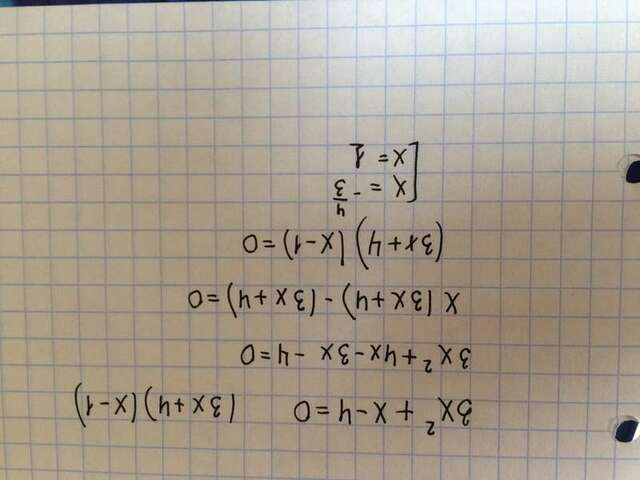 3x² + x - 4 = 0 (3x + 4)(x - 1)
3x² + 4x - 3x - 4 = 0
x(3x + 4) - (3x + 4) = 0
(3x + 4)(x - 1) = 0
[ x = - 4/3
x = 1